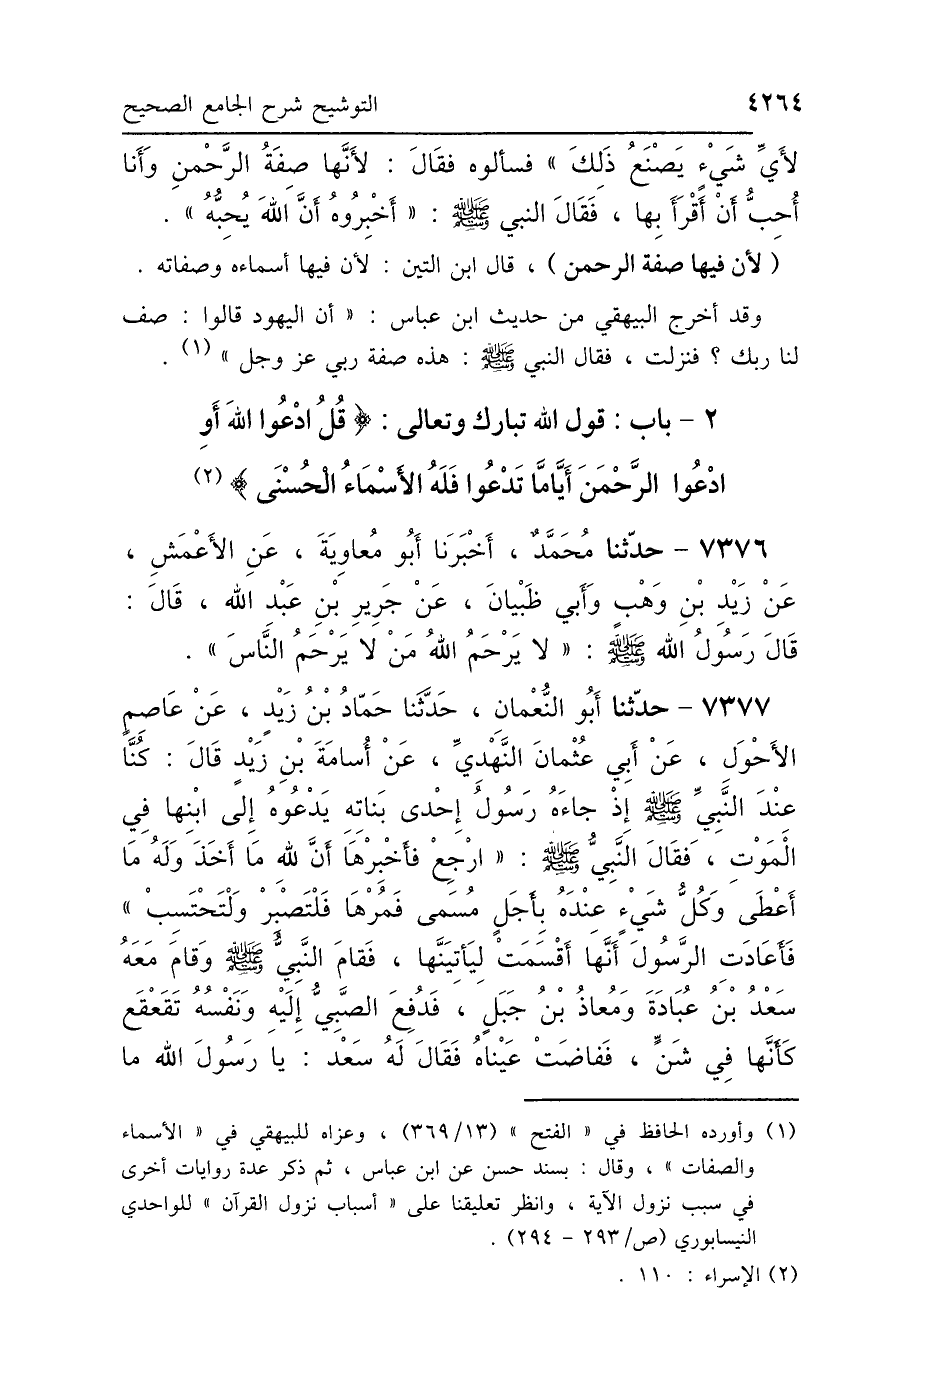 ٤٢٦٤ التوشيح شرح الجامع الصحيح
لأَيِّ شَيْءٍ يَصْنَعُ ذَلِكَ » فسألوه فقَالَ : لأَنَّها صِفَةُ الرَّحْمنِ وَأَنا
أُحِبُّ أَنْ أَقْرَأَ بِها ، فَقَالَ النبي ﷺ : « أَخْبِرُوهُ أَنَّ اللهَ يُحِبُّهُ » .
( لأن فيها صفة الرحمن ) ، قال ابن التين : لأن فيها أسماءه وصفاته .
وقد أخرج البيهقي من حديث ابن عباس : « أن اليهود قالوا : صف
لنا ربك ؟ فنزلت ، فقال النبي ﷺ : هذه صفة ربي عز وجل » (١) .
٢ - باب : قول الله تبارك وتعالى : ﴿ قُلُ ادْعُوا اللهَ أَوِ
ادْعُوا الرَّحْمَنَ أَيَّامَّا تَدْعُوا فَلَهُ الأَسْمَاءُ الْحُسْنَى ﴾ (٢)
٧٣٧٦ - حدّثنا مُحَمَّدٌ ، أَخْبَرَنَا أَبُو مُعاوِيَةَ ، عَنِ الأَعْمَشِ ،
عَنْ زَيْدِ بْنِ وَهْبٍ وَأَبي ظَبْيانَ ، عَنْ جَرِيرِ بْنِ عَبْدِ الله ، قَالَ :
قَالَ رَسُولُ الله ﷺ : « لا يَرْحَمُ اللهُ مَنْ لا يَرْحَمُ النَّاسَ » .
٧٣٧٧ - حدّثنا أَبُو النُّعْمانِ ، حَدَّثَنا حَمّادُ بْنُ زَيْدٍ ، عَنْ عَاصِمٍ
الأَحْوَلِ ، عَنْ أَبي عُثْمانَ النَّهْدِيِّ ، عَنْ أُسامَةَ بْنِ زَيْدٍ قَالَ : كُنَّا
عِنْدَ النَّبِيِّ ﷺ إِذْ جاءَهُ رَسُولُ إِحْدى بَناتِهِ يَدْعُوهُ إِلى ابْنِها فِي
الْمَوْتِ ، فَقَالَ النَّبِيُّ ﷺ : « ارْجِعْ فأَخْبِرْهَا أَنَّ للهِ مَا أَخَذَ وَلَهُ مَا
أَعْطَى وَكُلُّ شَيْءٍ عِنْدَهُ بِأَجَلٍ مُسَمى فَمُرْهَا فَلْتَصْبِرْ وَلْتَحْتَسِبْ »
فَأَعَادَتِ الرَّسُولَ أَنَّها أَقْسَمَتْ لِيَأتِيَنَّها ، فَقامَ النَّبِيُّ ﷺ وَقامَ مَعَهُ
سَعْدُ بْنُ عُبَادَةَ وَمُعاذُ بْنُ جَبَلٍ ، فَدُفِعَ الصَّبِيُّ إِلَيْهِ وَنَفْسُهُ تَقَعْقَع
كَأَنَّها فِي شَنٍّ ، فَفاضَتْ عَيْناهُ فَقَالَ لَهُ سَعْد : يا رَسُولَ الله ما
(١) وأورده الحافظ في « الفتح » (٣٦٩/١٣) ، وعزاه للبيهقي في « الأسماء
والصفات » ، وقال : بسند حسن عن ابن عباس ، ثم ذكر عدة روايات أخرى
في سبب نزول الآية ، وانظر تعليقنا على « أسباب نزول القرآن » للواحدي
النيسابوري (ص/ ٢٩٣ - ٢٩٤) .
(٢) الإسراء : ١١٠ .